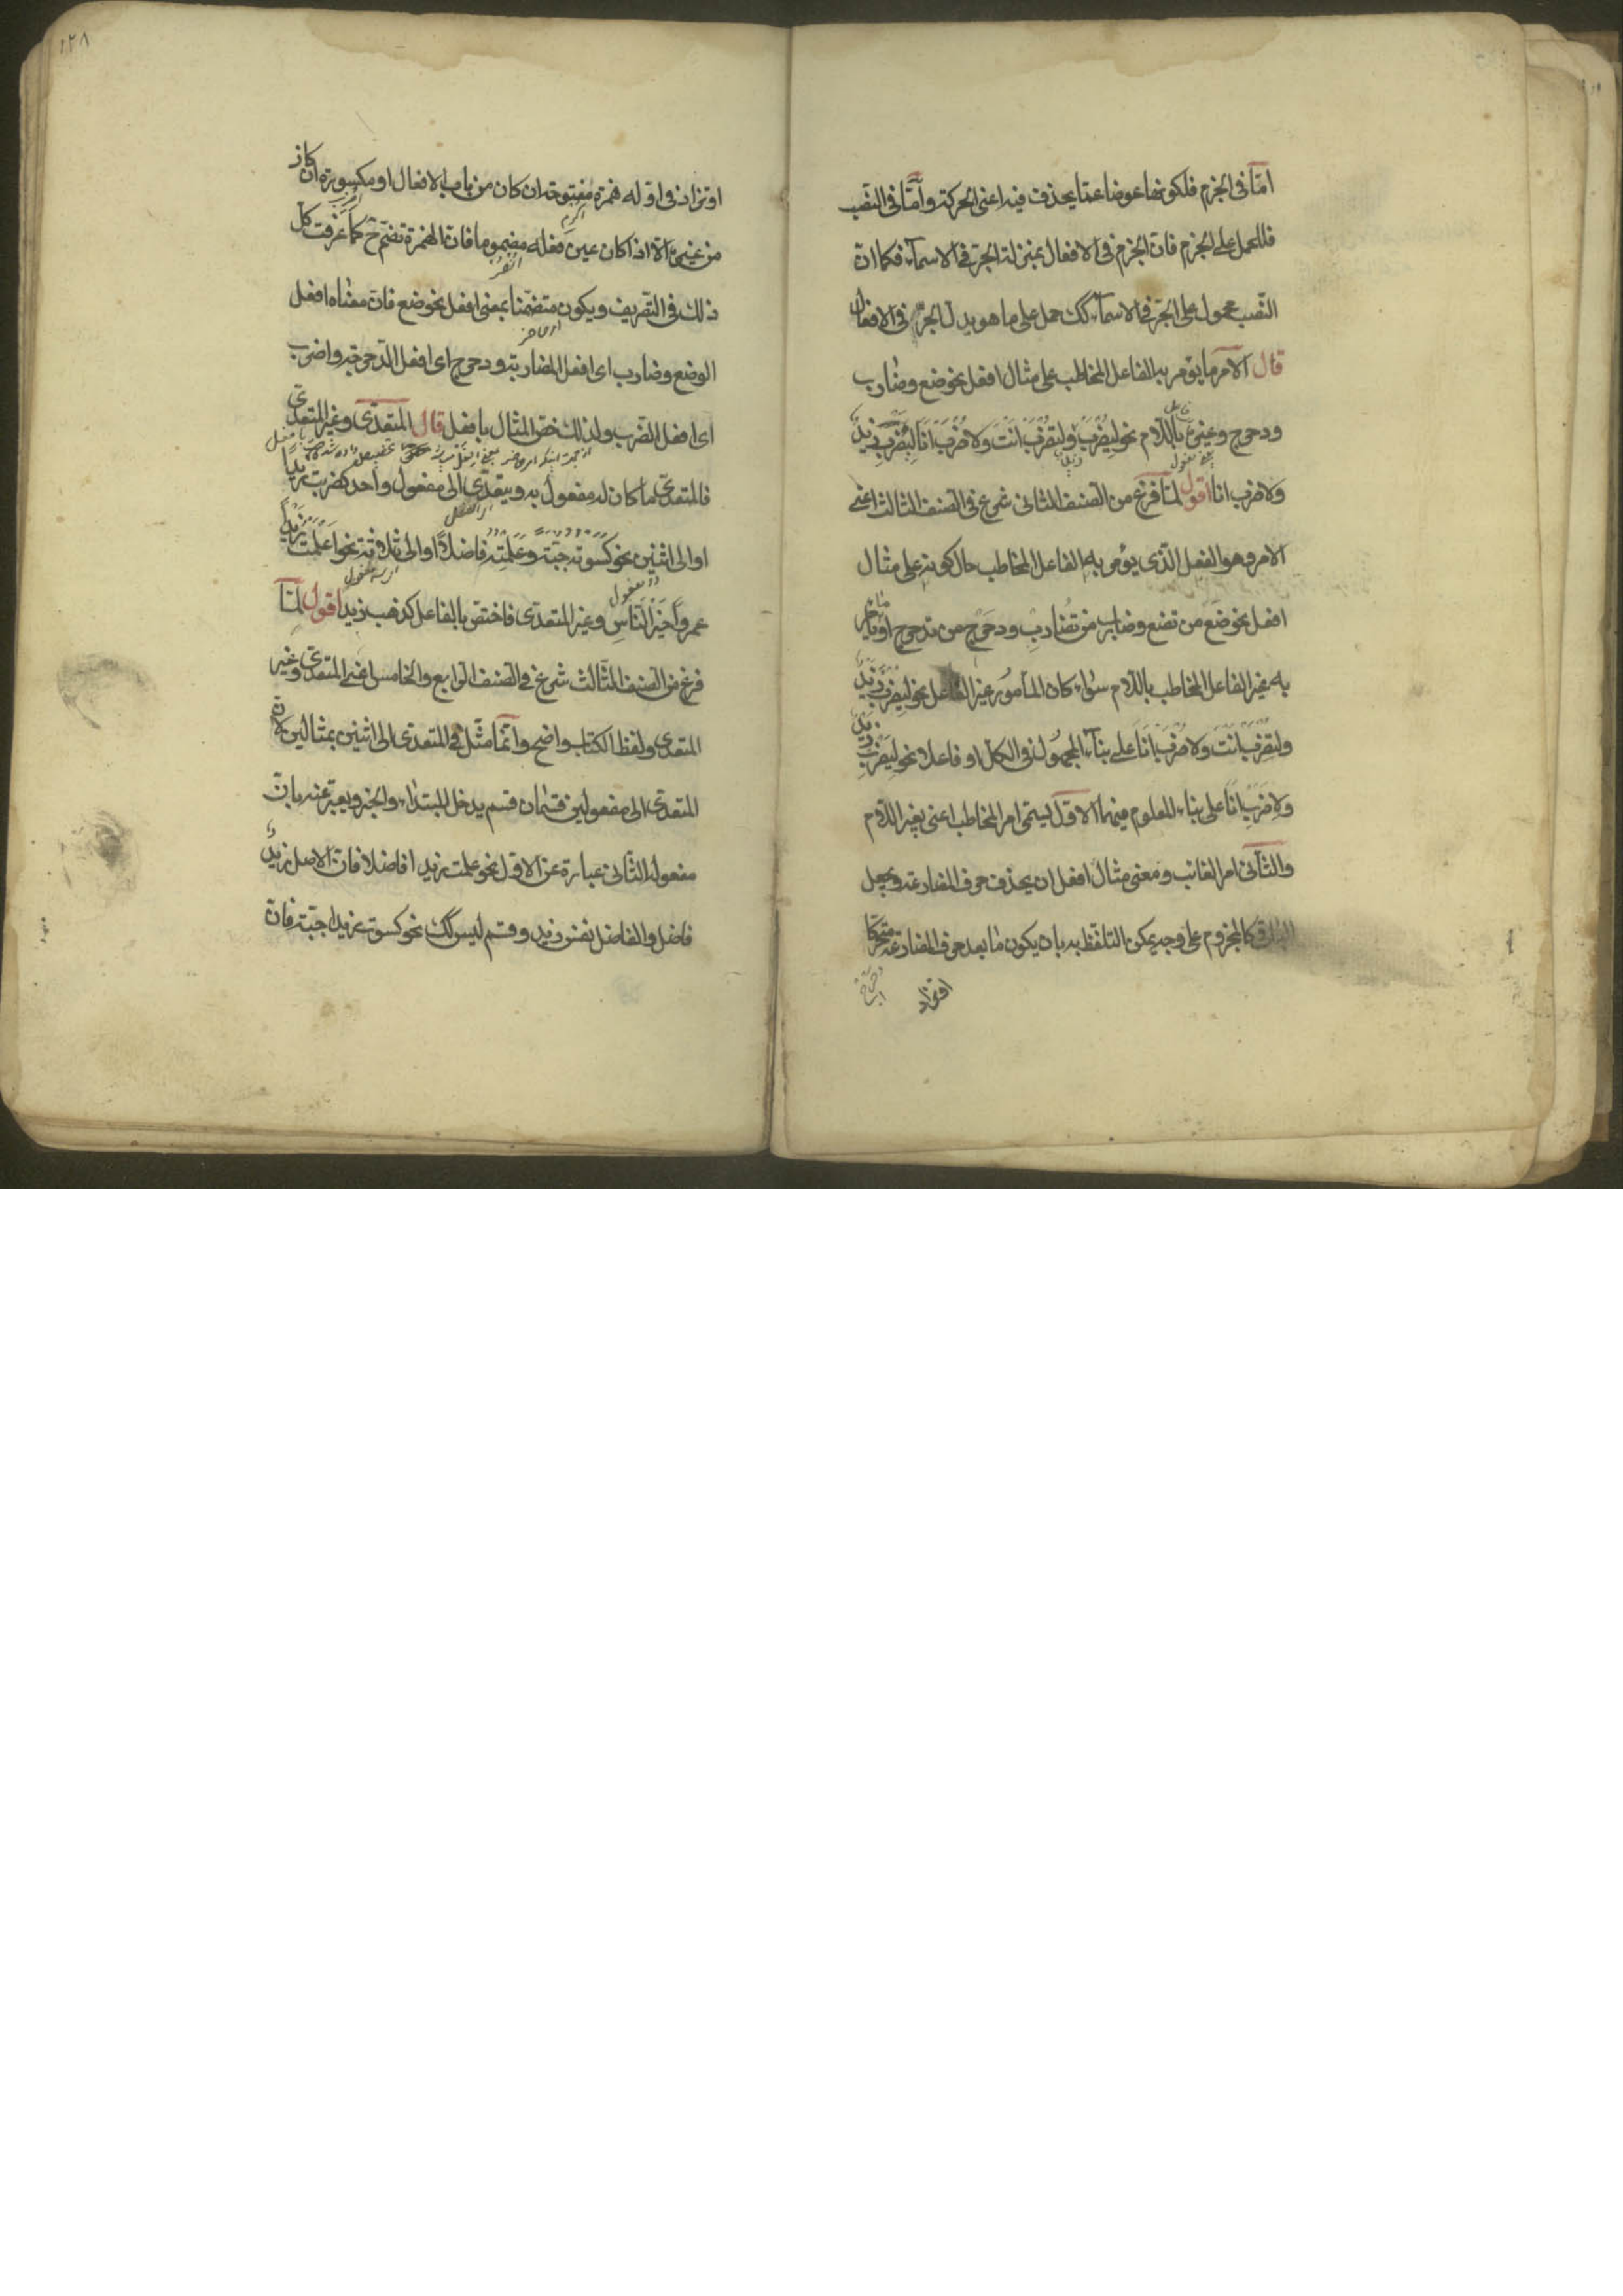 امّا فى الجزم فلكونها عوضا عمّا يحذف فيه اعنى الحركة وامّا فى النصب
فللحمل على الجزم فانّ الجزم فى الافعال بمنزلة الجرّ فى الاسمآء فكما انّ
النّصب محمول على الجرّ فى الاسمآء كك حمل على ما هو بدل الجرّ فى الافعال
قال الامر ما يؤمر به الفاعل المخاطب على مثال افعل نحو ضع وضارب
ودحرج وغيره باللّام نحو ليُضْرَبْ زيدٌ ولتُضْرَبْ انتَ ولاُضْرَبْ انَا ليَضْرِبْ زيدٌ
ولاضرب انا اقول لمّا فرغ من الصنف الثانى شرع فى الصنف الثالث اعنى
الامر وهو الفعل الّذى يؤمر به الفاعل المخاطب حال كونه على مثال
افعل نحو ضَعْ من تضع وضارِبْ من تُضارِبُ ودحرج من تدحرج او يؤمر
به غير الفاعل المخاطب باللّام سوآء كان المأمور غير الفاعل نحو ليُضْرَبْ زيدٌ
ولتُضْرَبْ انتَ ولاُضْرَبْ انَا على بنآء المجهول فى الكلّ او فاعلا نحو ليَضْرِبْ زيدٌ
ولِاَضْرِبْ انَا على بناء المعلوم فيهما الاوّل يسمّى امر المخاطب اعنى بغير اللّام
والثّانى امر الغائب ومعنى مثال افعل ان يحذف حرف المضارعة ويجعل
الباقى كالمجزوم على وجه يمكن التلفّظ به بان يكون ما بعد حرف المضارعة متحرّكا
دحرج
او تزاد
١٢٨
او تزاد فى اوّله همزة مفتوحة ان كان من باب الافعال او مكسورة ان كان
من غيره الّا اذا كان عين فعله مضموما فانّ الهمزة تضمّ ح كما عرفت كلّ
ذلك فى التّصريف ويكون متضمّنا بمعنى افعل نحو ضع فانّ معناه افعل
الوضع وضارب اى افعل المضاربة ودحرج اى افعل الدّحرجة واضرب
اى افعل الضّرب ولذلك خصّ المثال بافعل قال المتعدّى وغير المتعدّى
فالمتعدّى ما كان له مفعول به ويتعدّى الى مفعول واحد كضربت زيداً
او الى اثنين نحو كسوته جبّة وعلمته فاضلاً او الى ثلاثة نحو اعلمت زيداً
عمرواً خيرَ النّاسِ وغير المتعدّى فاختصّ بالفاعل كذهب زيد اقول لمّا
فرغ من الصنف الثّالث شرع فى الصنف الرّابع والخامس اعنى المتعدّى وغير
المتعدى ولفظ الكتاب واضح وانّما مثّل فى المتعدّى الى اثنين بمثالين لانّ
المتعدى الى مفعولين قسمان قسم يدخل المبتداء والخبر ويعبّر عنه بانّ
مفعوله الثّانى عبارة عن الاوّل نحو علمت زيدا فاضلا فانّ الاصل زيدٌ
فاضل والفاضل نفس زيد وقسم ليس كك نحو كسوت زيدا جبّة فانّ